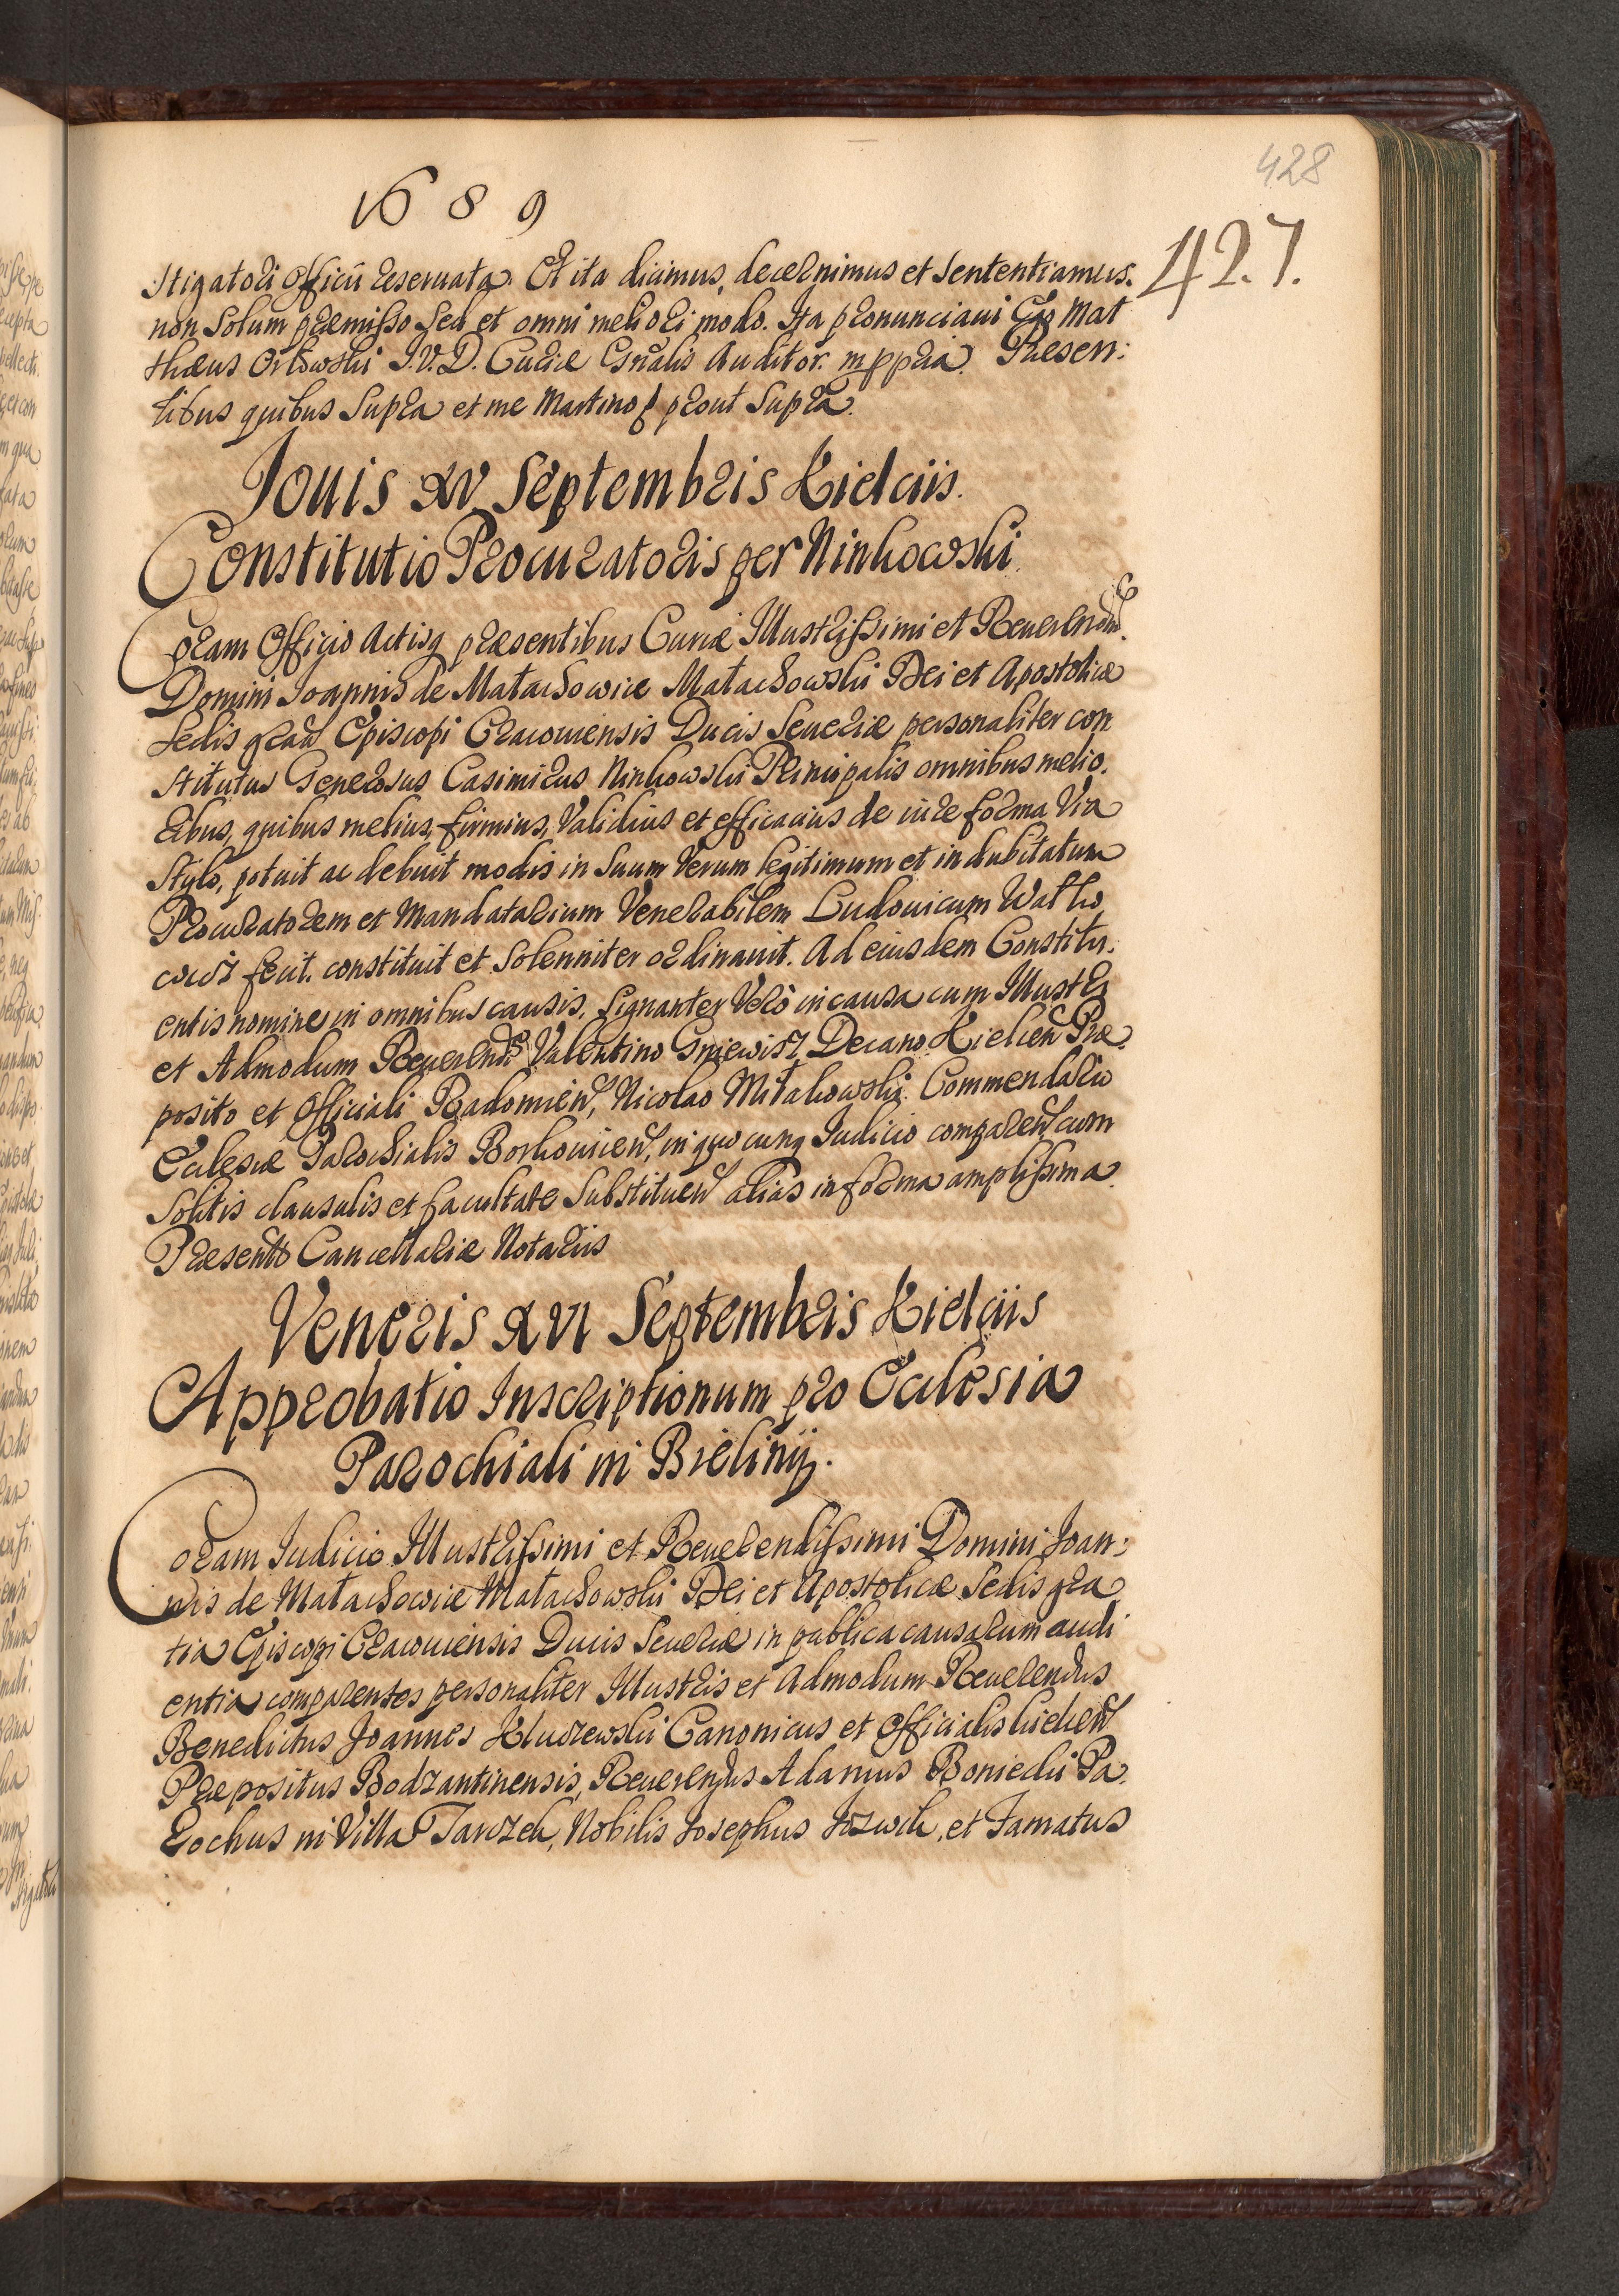 428
427.
1689
stigatori Officii reseruata. Et ita dicimus, decernimus et Sententiamus.
non Solum praemisso sed et omni meliori modo. Ita pronunciaui Ego Mat
thaeus Orłowski I.V.D. Curiae Gnralis Auditor. mppria. Praesen:
tibus quibus Supra et me Martino prout Supra.
Jouis XV Septembris Kielciis.
Constitutio Procuratoris per Ninkowski.
Coram Officio Actisq praesentibus Curiae Illustrissimi et Reuerendm
Domini Joannis de Małachowice Małachowski Dei et Apostolicae
Sedis graa Episcopi Cracouiensis Ducis Seueriae personaliter con
stitutus Generosus Casimirus Ninkowski Principalis omnibus melio.
ribus, quibus melius, firmius, Validius et efficacius de iure forma Via
Stylo, potuit ac debuit modis in Suum Verum legitimum et indubitatum
Procuratorem et Mandatarium Venerabilem Ludouicum Wałko
wicz fecit. constituit et Solenniter ordinauit. Ad eiusdem Constitu.
entis nomine in omnibus causis, Signanter Vero in causa cum Illustri
et Admodum Reuerendis Valentino Gniewisz Decano Kielcen Prae.
posito et Officiali Radomien, Nicolao Mitakowski Commendario
Ecclesiae Parochialis Borkouicen, in quocunq Iudicio comparen cum
Solitis clausulis et facultate Substituen alias in forma amplissima.
Praesentb Cancellariae Notariis
Veneris XVI Septembris Kielciis
Approbatio Inscriptionum pro Ecclesia
Parochiali in Bieliny.
Coram Iudicio Illustrissimi et Reuerendissimi Domini Joan:
nis de Małachowice Małachowski Dei et Apostolicae Sedis gra
tia Episcopi Cracouiensis Ducis Seueriae in publica causarum audi
entia comparentes personaliter Illustris et Admodum Reuerendus
Benedictus Joannes Kluczewski Canonicus et Officialis Kielcen
Praepositus Bodzantinensis, Reuerendus Adamus Boniecki Pa.
rochus in Villa Tarczek, Nobilis Josephus Jozwik, et Famatus